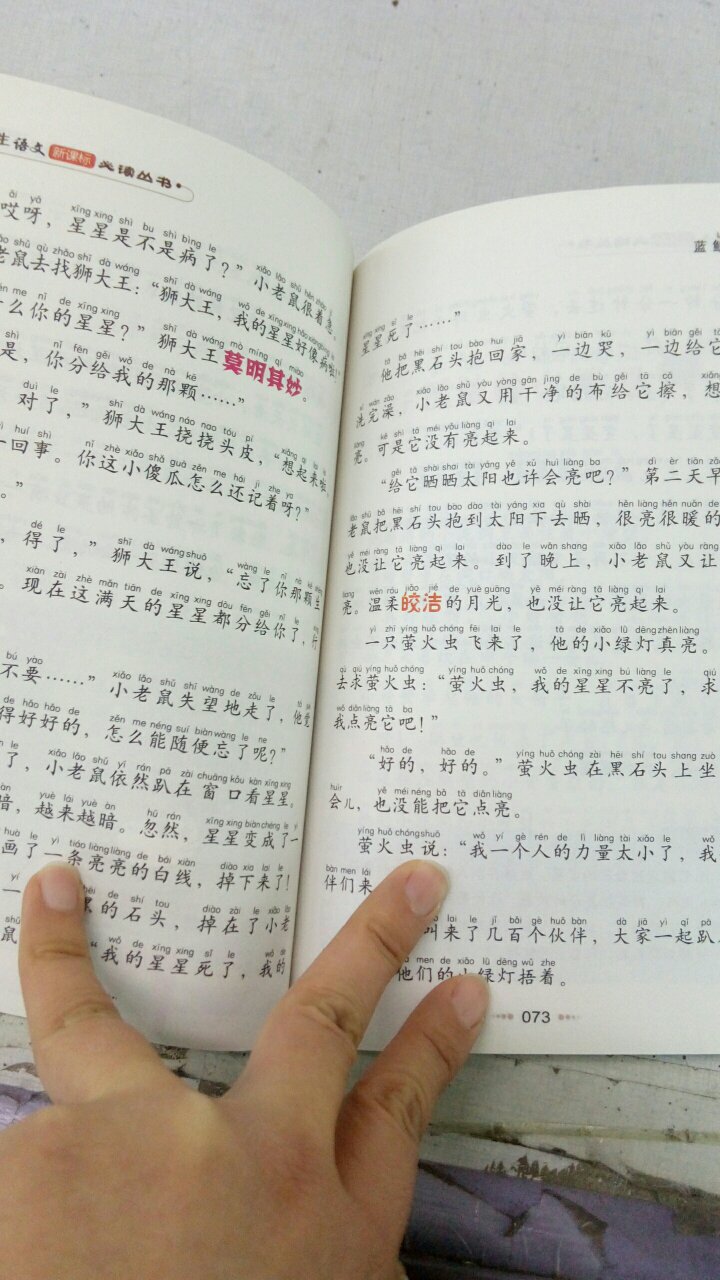 生语文 新课标 必读丛书
āi yā xīng xing shì bu shì bìng le xiǎo lǎo shǔ hěn zháo jí
哎呀，星星是不是病了？”小老鼠很着急
老鼠去找狮大王：“狮大王，我的星星好像病啦！
什么你的星星？”狮大王莫明其妙。
是，你分给我的那颗……”
对了，”狮大王挠挠头皮，“想起来啦，
一回事。你这小傻瓜怎么还记着呀？”
。”
得了，”狮大王说，“忘了你那颗
。现在这满天的星星都分给你了，行
不要……”小老鼠失望地走了，他觉
得好好的，怎么能随便忘了呢？”
了，小老鼠依然趴在窗口看星星。
暗，越来越暗。忽然，星星变成了一
画了一条亮亮的白线，掉下来了！
一 黑的石头，掉在了小老
鼠
“我的星星死了，我的
蓝
星星死了……”
他把黑石头抱回家，一边哭，一边给它
洗完澡，小老鼠又用干净的布给它擦，想
亮。可是它没有亮起来。
“给它晒晒太阳也许会亮吧？”第二天早
老鼠把黑石头抱到太阳下去晒，很亮很暖的
也没让它亮起来。到了晚上，小老鼠又让
亮。温柔皎洁的月光，也没让它亮起来。
一只萤火虫飞来了，他的小绿灯真亮。
去求萤火虫：“萤火虫，我的星星不亮了，求
我点亮它吧！”
“好的，好的。”萤火虫在黑石头上坐
会儿，也没能把它点亮。
萤火虫说：“我一个人的力量太小了，我
伴们来
叫来了几百个伙伴，大家一起趴
他们的小绿灯捂着。
073